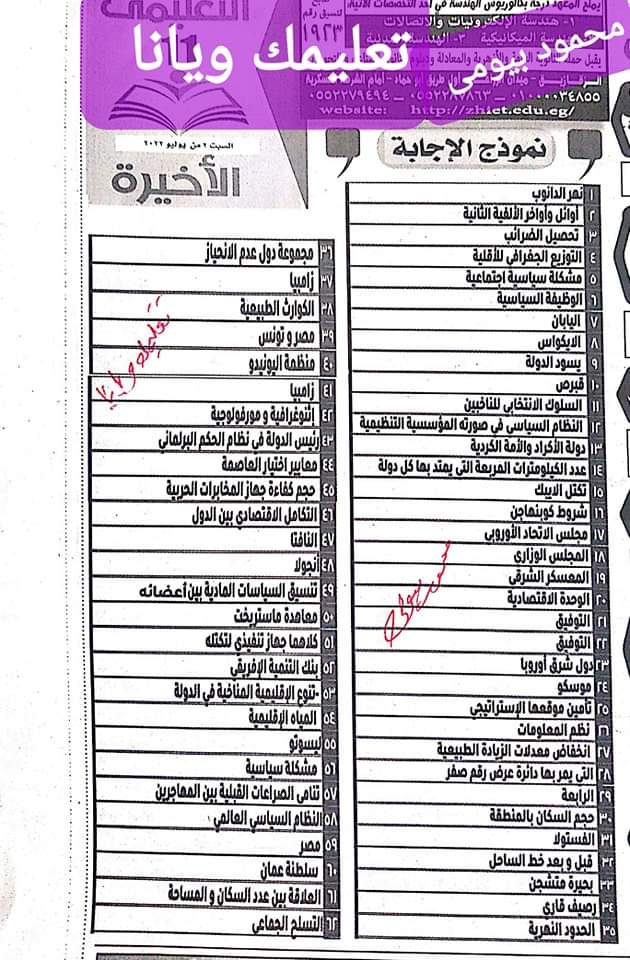 يمنح المعهد درجة بكالوريوس الهندسة في أحد التخصصات الآتية:
١- هندسة الإلكترونيات والاتصالات
١٩٢٣
محمود بيومى
تعليمك ويانا
٠٥٥٢٢٧٩٤٩٤ – ٠٥٥٢٢٨٧٨٦٣ – ٠١٠٠٠٠٣٤٨٥٥
website: http://zhiet.edu.eg/
السبت ٢ من يوليو ٢٠٢٢
الأخيرة
نموذج الإجابة
١ نهر الدانوب
٢ أوائل وأواخر الألفية الثانية
٣ تحصيل الضرائب
٤ التوزيع الجغرافي للأقلية
٥ مشكلة سياسية اجتماعية
٦ الوظيفة السياسية
٧ اليابان
٨ الايكواس
٩ يسود الدولة
١٠ قبرص
١١ السلوك الانتخابي للناخبين
١٢ النظام السياسي في صورته المؤسسية التنظيمية
١٣ دولة الأكراد والأمة الكردية
١٤ عدد الكيلومترات المربعة التى يمتد بها كل دولة
١٥ تكتل الايباك
١٦ شروط كوبنهاجن
١٧ مجلس الاتحاد الأوروبي
١٨ المجلس الوزارى
١٩ المعسكر الشرقى
٢٠ الوحدة الاقتصادية
٢١ التوفيق
٢٢ التوفيق
٢٣ دول شرق أوروبا
٢٤ موسكو
٢٥ تأمين موقعها الإستراتيجي
٢٦ نظم المعلومات
٢٧ انخفاض معدلات الزيادة الطبيعية
٢٨ التي يمر بها دائرة عرض رقم صفر
٢٩ الرابعة
٣٠ حجم السكان بالمنطقة
٣١ الفستولا
٣٢ قبل و بعد خط الساحل
٣٣ بحيرة متشجن
٣٤ رصيف قاري
٣٥ الحدود النهرية
٣٦ مجموعة دول عدم الانحياز
٣٧ زامبيا
٣٨ الكوارث الطبيعية
٣٩ مصر و تونس
٤٠ منظمة اليونيدو
٤١ زامبيا
٤٢ إثنوغرافية و مورفولوجية
٤٣ رئيس الدولة في نظام الحكم البرلماني
٤٤ معايير اختيار العاصمة
٤٥ حجم كفاءة جهاز المخابرات الحربية
٤٦ التكامل الاقتصادي بين الدول
٤٧ النافتا
٤٨ أنجولا
٤٩ تنسيق السياسات المادية بين أعضائه
٥٠ معاهدة ماستريخت
٥١ كلاهما جهاز تنفيذي لتكتله
٥٢ بنك التنمية الإفريقي
٥٣ -تنوع الإقليمية المناخية في الدولة
٥٤ المياه الإقليمية
٥٥ ليسوتو
٥٦ مشكلة سياسية
٥٧ تنامى الصراعات القبلية بين المهاجرين
٥٨ النظام السياسي العالمي
٥٩ مصر
٦٠ سلطنة عمان
٦١ العلاقة بين عدد السكان و المساحة
٦٢ التسلح الجماعى
تعليمك ويانا
محمود بيومى